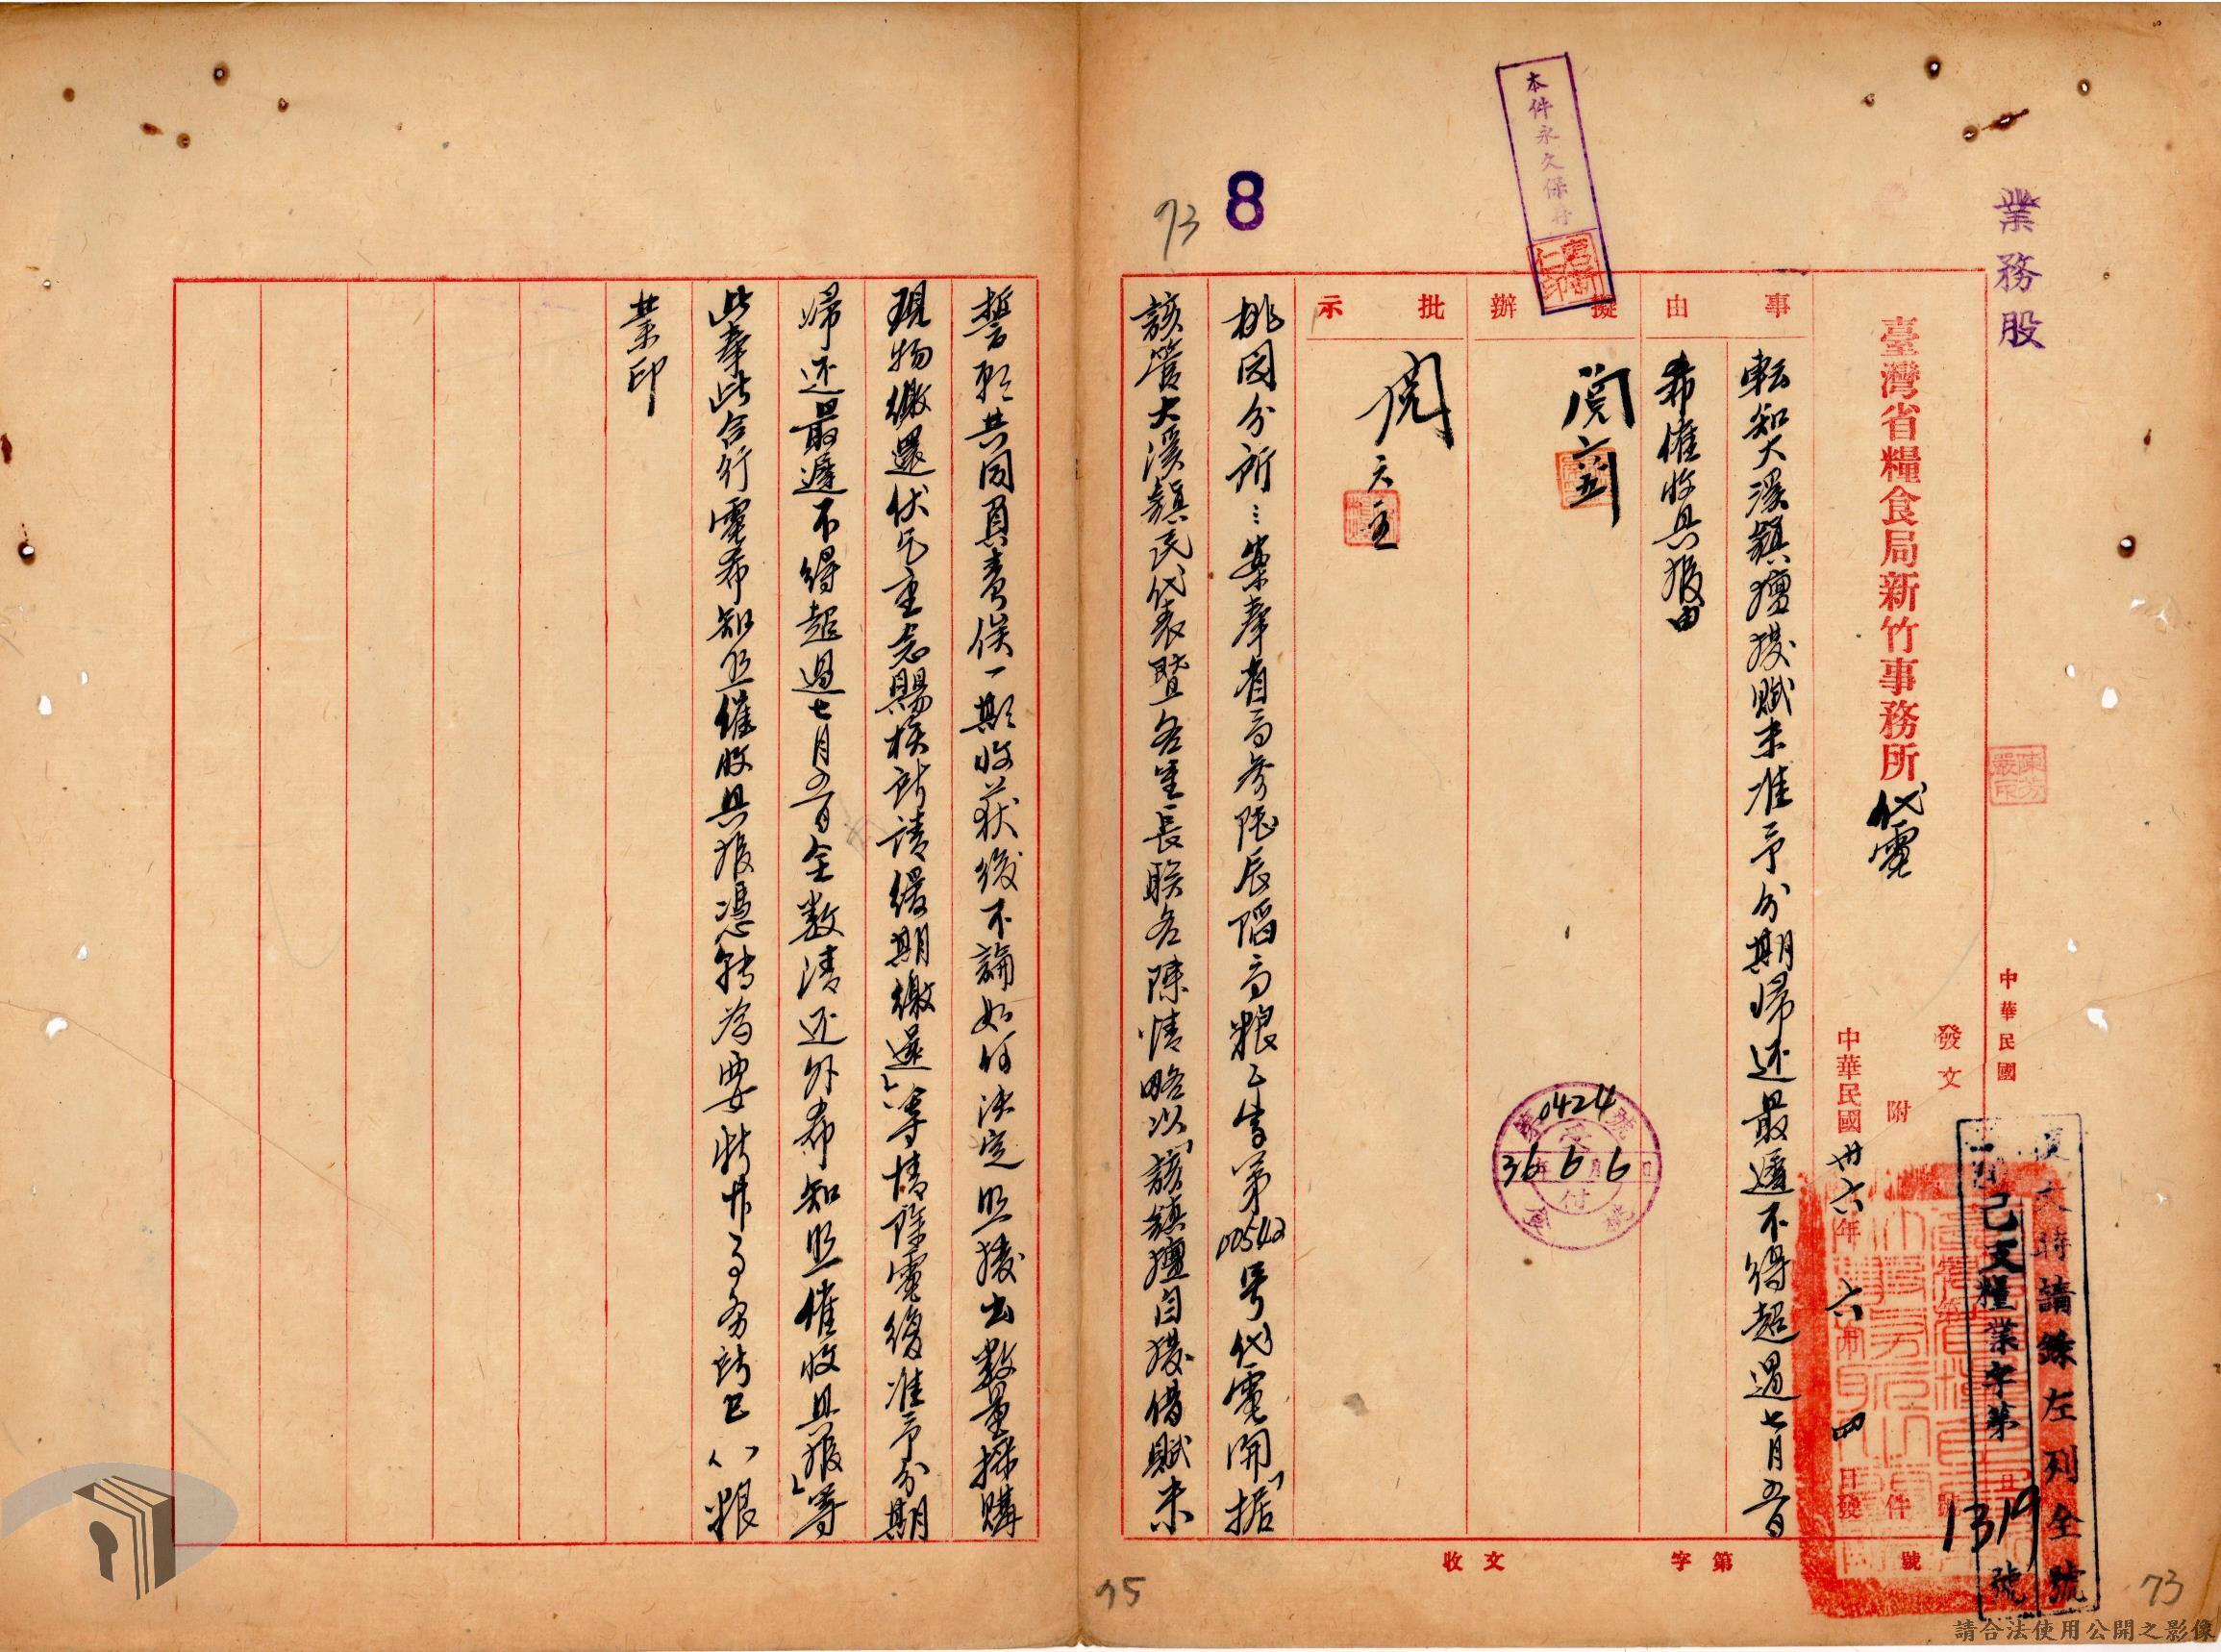 業務股
本件永久保存
8
73
臺灣省糧食局新竹事務所代電
中華民國
發文
附件
中華民國卅六年六月四日發
復文時請錄左列全號
己支糧業字第1319號
事由
転知大溪鎮擅撥賦米准予分期歸还最遲不得超過七月五日
希催收具报由
擬辦
閱
批示
閱
第0424號
36年6月6日
受付
桃園分所:案奉省局參陸辰陷局粮乙字第00542号代電開「据
該管大溪鎮民代表暨各里長联名陳情略以「該鎮擅自撥借賦米
誓耶共同負責俟一期收获後不論如何決定照撥出數量採購
現物繳還伏乞垂念賜核所請緩期繳還」等情除電復准予分期
歸还最遲不得超過七月五日全數清还外希知照催收具报」等
此奉此合行電希知照催收具报憑轉為要新竹事务所巳(支)粮
業印
收文 字第 號
75
73
請合法使用公開之影像